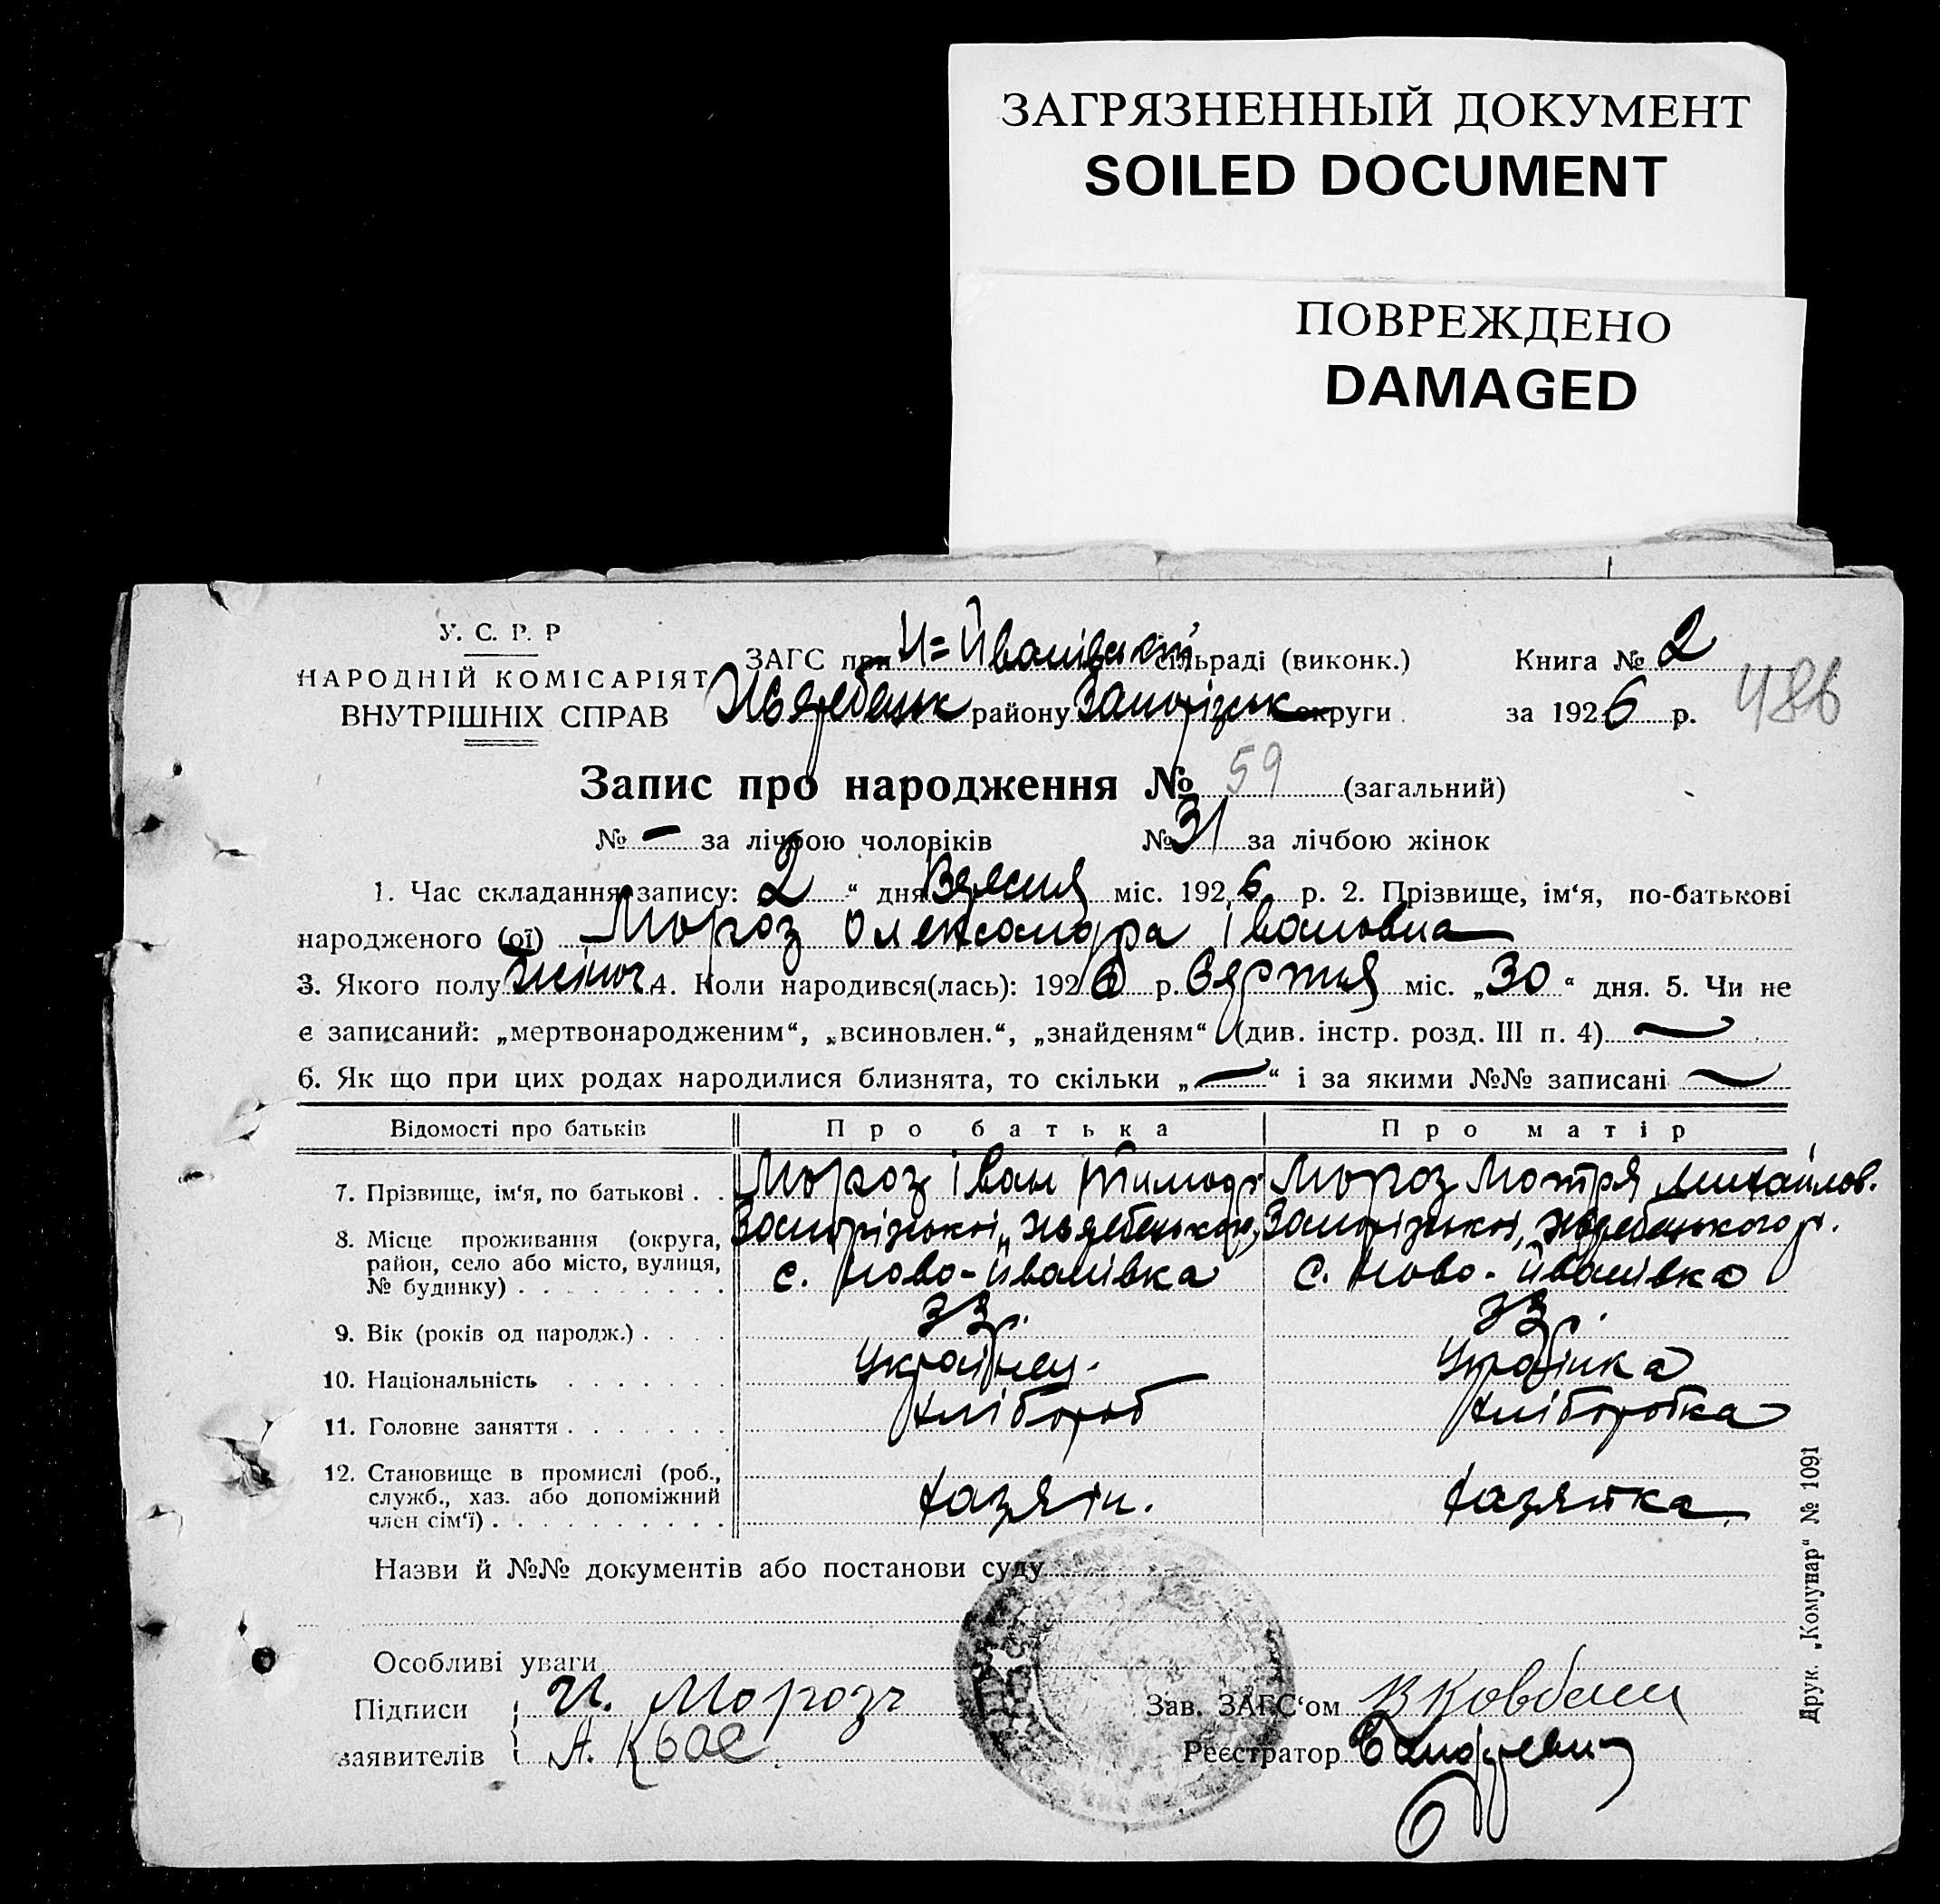 ЗАГРЯЗНЕННЫЙ ДОКУМЕНТ
SOILED DOCUMENT
ПОВРЕЖДЕНО
DAMAGED
У. С. Р. Р
НАРОДНІЙ КОМІСАРІЯТ
ВНУТРІШНІХ СПРАВ
ЗАГС при Н=Йванівській сільраді (виконк.)
Жеребецьк району Запорізьк округи
Книга № 2
за 1926 р.
486
Запис про народження № 59 (загальний)
№ — за лічбою чоловіків № 31 за лічбою жінок
1. Час складання запису: 2 “ дня Вересня міс. 1926 р. 2. Прізвище, ім‘я, по-батькові
народженого (ої) Мороз Олександра Івановна
3. Якого полу жіноч 4. Коли народився(лась): 1926 р. міс. „30“ дня. 5. Чи не
є записаний: „мертвонародженим“, „всиновлен.“, „знайденям“ (див. інстр. розд. III п. 4) —
6. Як що при цих родах народилися близнята, то скільки „—“ і за якими №№ записані —
Відомості про батьків Про батька Про матір
7. Прізвище, ім‘я, по батькові . . Мороз Іван Тимоф. Мороз Мотря Михайлов.
8. Місце проживання (округа, Запорізької, Жеребецького, Запорізької, Жеребецького р.
район, село або місто, вулиця, с. Ново-Йванівка с. Ново-Йванівка
№ будинку) . . . . . . . . .
9. Вік (років од народж.) . . . . 33 р. 33 р.
10. Національність . . . . . . . Українец. Українка
11. Головне заняття . . . . . . . хлібороб хліборобка
12. Становище в промислі (роб.,
служб., хаз. або допоміжний хазяін. хазяйка
член сім‘ї) . . . . . . . . . .
Назви й №№ документів або постанови суду
Особливі уваги
Підписи И. Мороз Зав. ЗАГС‘ом
заявителів А. Реєстратор
Друк. „Комунар“ № 1091